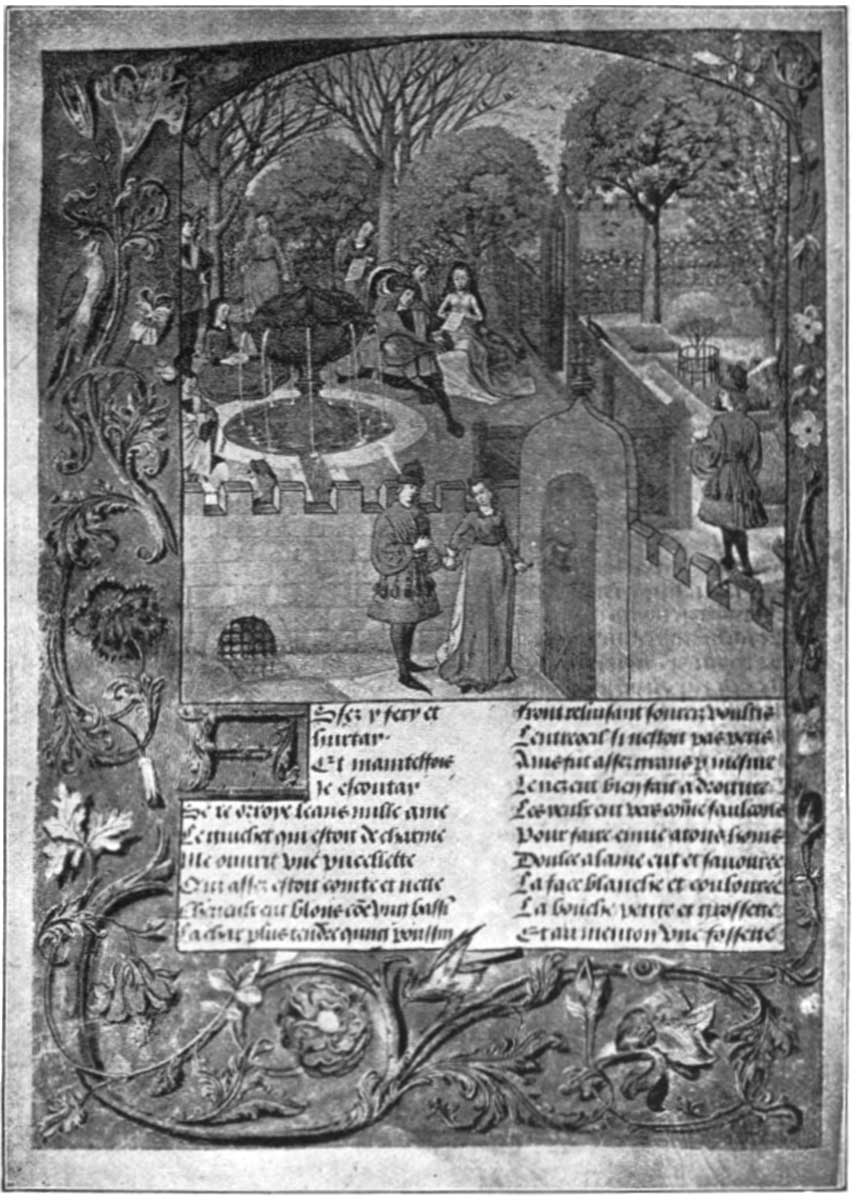 Assez y fery et
hurtay.
Et maintesfois
Je escoutay
Se ie orroye leans nulle ame
Le guichet qui estoit de charme
Me ouurit vne pucellette
Qui assez estoit cointe et nette
Cheueulx eut blons cōe vng bassī
La char plus tendre qung poussin
Front reluisant sourcilz voultis
Lentreoeil si nestoit pas petis
Ains fut assez grans p mesure
Le nez eut bien fait a droiture
Les yeulx eut vers cōme faulcons
Pour faire enuie a tous homs
Doulce alaine eut et sauouree
La face blanche et couloree
La bouche petite et grossette
Et au menton vne fossette